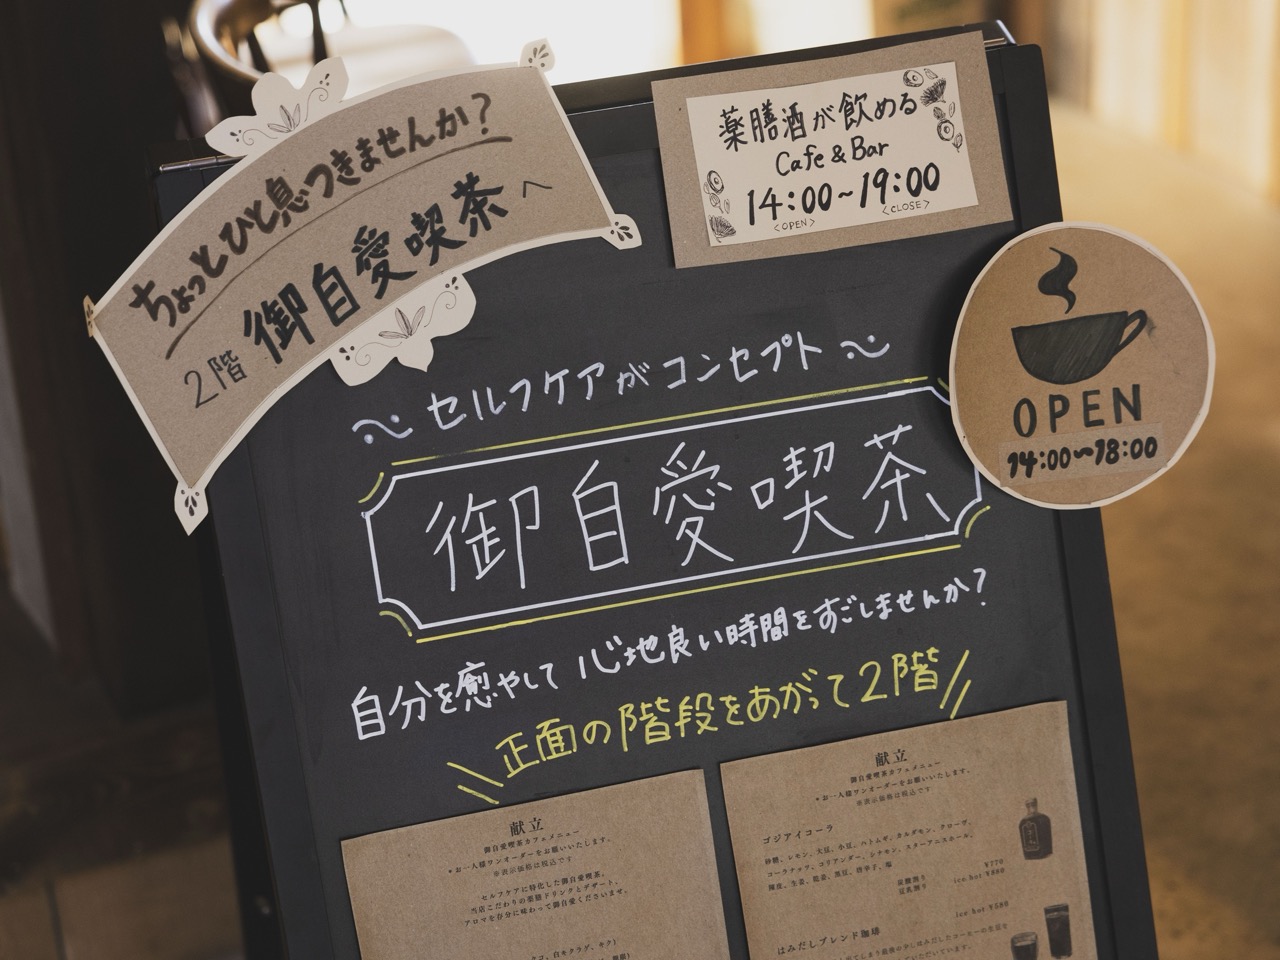 ちょっとひと息つきませんか？
2階 御自愛喫茶へ
薬膳酒が飲める
Cafe & Bar
14:00～19:00
<OPEN> <CLOSE>
OPEN
14:00～18:00
～セルフケアがコンセプト～
御自愛喫茶
自分を癒やして心地良い時間をすごしませんか？
正面の階段をあがって2階
献立
御自愛喫茶カフェメニュー
*お一人様ワンオーダーをお願いいたします。
※表示価格は税込です
セルフケアに特化した御自愛喫茶。
当店こだわりの薬膳ドリンクとデザート、
アロマを存分に味わって御自愛くださいませ。
献立
御自愛喫茶カフェメニュー
*お一人様ワンオーダーをお願いいたします。
※表示価格は税込です
ゴジアイコーラ
砂糖、レモン、大豆、小豆、ハトムギ、カルダモン、クローヴ、
コーラナッツ、コリアンダー、シナモン、スターアニスホール、
陳皮、生姜、龍眼、黒豆、唐辛子、塩
炭酸割り ¥770
豆乳割り ice hot ¥880
ice hot ¥580
はみだしブレンド珈琲